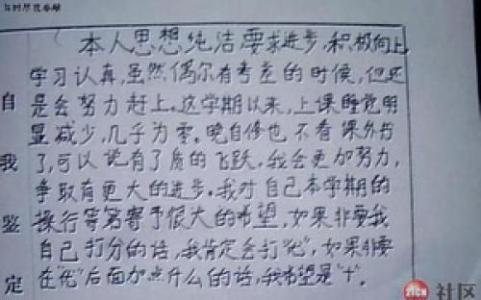 本人思想纯洁要求进步,积极向上
学习认真,虽然偶尔有考差的时候,但还
是会努力赶上。这学期以来,上课睡觉明
显减少,几乎为零。晚自修也不看课外书
了,可以说有了质的飞跃,我会更加努力,
争取有更大的进步。我对自己本学期的
操行等第寄予很大的希望,如果非要我
自己打分的话,我肯定会打"优",如果非要
在"优"后面加点什么的话,我希望是"+"。
自我鉴定
社区